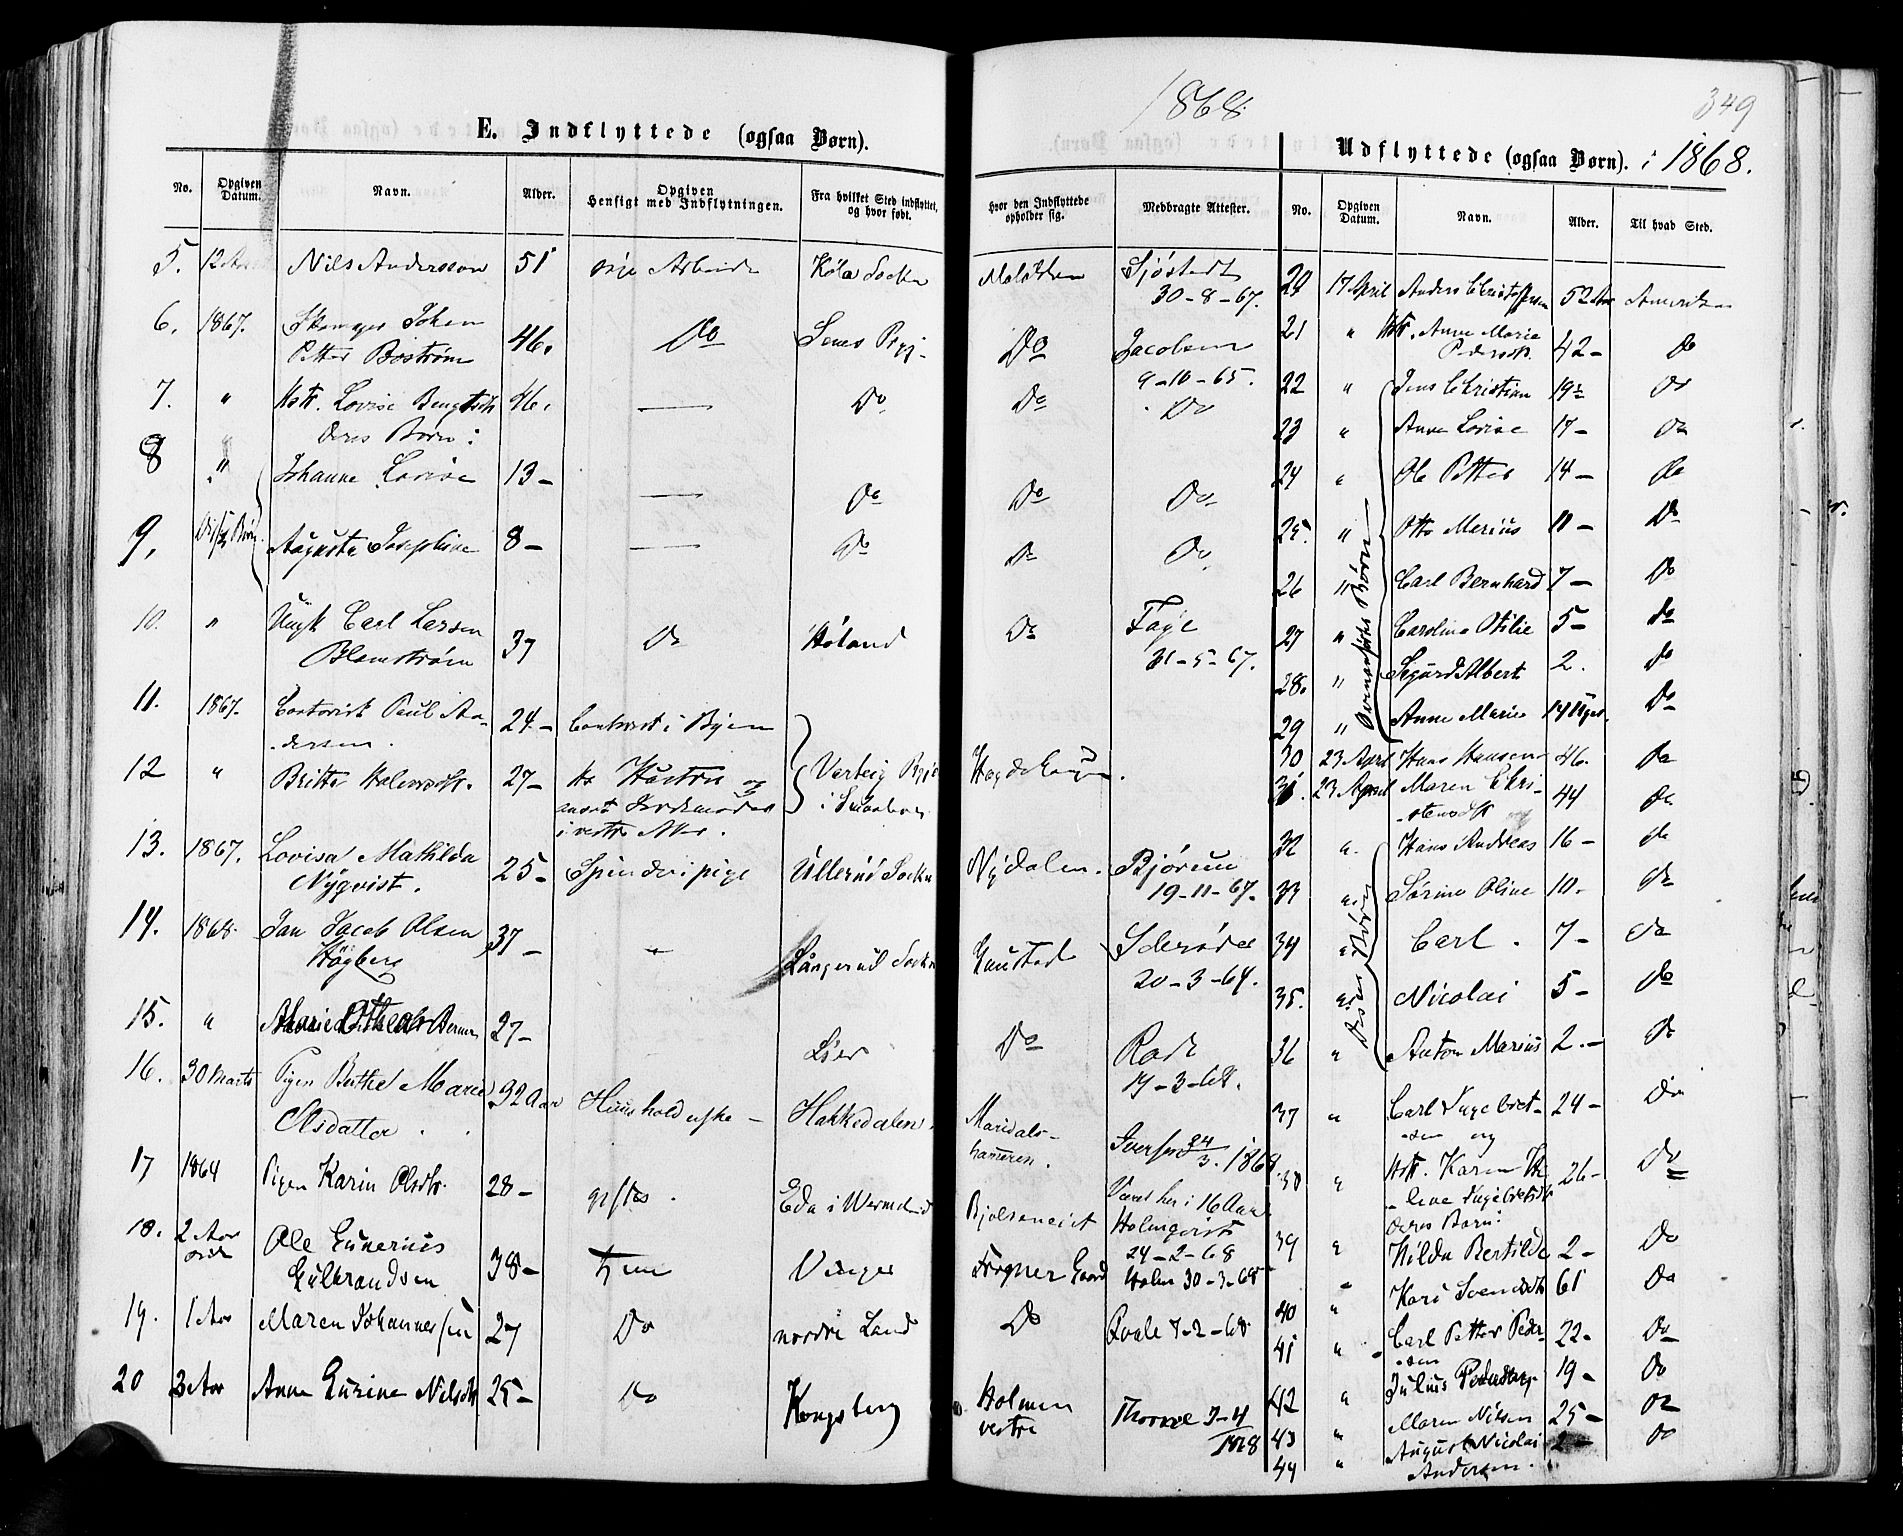 1868.
349
E. Indflyttede (ogsaa Børn).
No.
Opgiven Datum.
Navn.
Alder.
Opgiven Hensigt med Indflytningen.
Fra hvilket Sted indflyttet, og hvor født.
Hvor den Indflyttede opholder sig.
Medbragte Attester.
5. Nils Andersson 51 Arbeide Köla Socken Sjöstedt
30-8-67.
6. 1867. Johan 46. Do Do Jacobsen
Petter Boström 9-10-65.
7. " Hstr. Lovise 46. — Do Do Do
Deres Børn:
8 " Johanne Lovise 13- — Do Do Do
9. Augusta Josephine 8- — Do Do Do
10. " Ungk Carl Larsen 37 Do Høland Do Faye
Blomstrøm 31-5-67.
11. 1867. Paul An-
dersen. 24- i Byen
12 " Britta 27- og
i vestre Aker.
13. 1867. Lovisa Mathilda 25- Spinderipige Ullerud Socken Nydalen. Bjørum
Nyqvist. 19-11-67.
14. 1868. Jan Jacob Olsen 37- — Gaustad
Högberg 20-3-64.
15. " Marie 27- Lier Do Rode
17-3-68.
16. 30 Marts Pigen Berthe Marie 32 Aar Huusholderske - Hakkedalen. Maridals-
Olsdatter hammeren. 24/3. 1868.
17 1864 Pigen Karin Olsdtr. 28- giftes. Eda i Wermeland Været her i 16 Aar
Holmqvist
24-2-68
18. 2 Aar
siden Ole Gunerius 38- Tjene Vinger Frogner Gaard Holm 30-3-68
Gulbrandsen
19. 1 Aar Maren Johannessen 27 Do nordre Land Do Qvale 7-2-68
20 3 Aar Anne Gurine Nilsdtr 25- Do Kongsberg Holmen
vestre 7-4
1868
Udflyttede (ogsaa Børn). i 1868.
No.
Opgiven Datum.
Navn.
Alder.
Til hvad Sted.
20 17 April Anders Christoffersen 52 Aar Amerika
21 " Hstr. Anne Marie
Pedersdtr. 42- Do
22 " Jens Christian 19- Do
23 " Anne Lovise 17- Do
24 " Ole Petter 14- Do
25. " Otto Marius 11- Do
26 " Carl Bernhard 7- Do
27 " Carolina Otilie 5- Do
28. " Sigurd Albert 2. Do
29 " Anne Marie 14 Uger. Do
Ovenanførtes Børn
30 23 April Hans Hansen 46. Do
31. 23 April Maren Chri-
stensdtr og 44 Do
32 " Hans Andreas 16- Do
33 " Sørine Oline 10. Do
34 " Carl. 7- Do
35. " Nicolai 5- Do
36 " Anton Marius 2.- Do
Deres Børn
37 " Carl Ingebret-
sen og 24- Do
38 " Hstr. Karen
line Ingebretsdtr 26- Do
deres Barn:
39 " Hilda Bertilde 2- Do
40 " Kari Svensdtr 61 Do
41 " Carl Petter Peder-
sen 22- Do
42 " Julius 19- Do
43 " Maren Nilsen 25- Do
44 " August Nicolai 2- Do
Andersen.